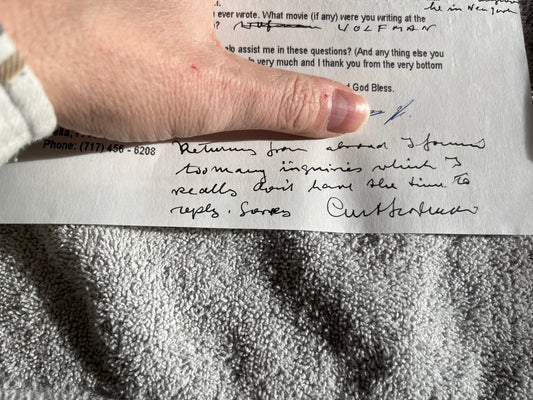 he in New York
ever wrote. What movie (if any) were you writing at the
? WOLFMAN
assist me in these questions? (And anything else you
very much and I thank you from the very bottom
God Bless.
Phone: (717) 456 - 6208
Returning from abroad I found
too many inquiries which I
really don't have the time to
reply. Sorry Curt Siodmak